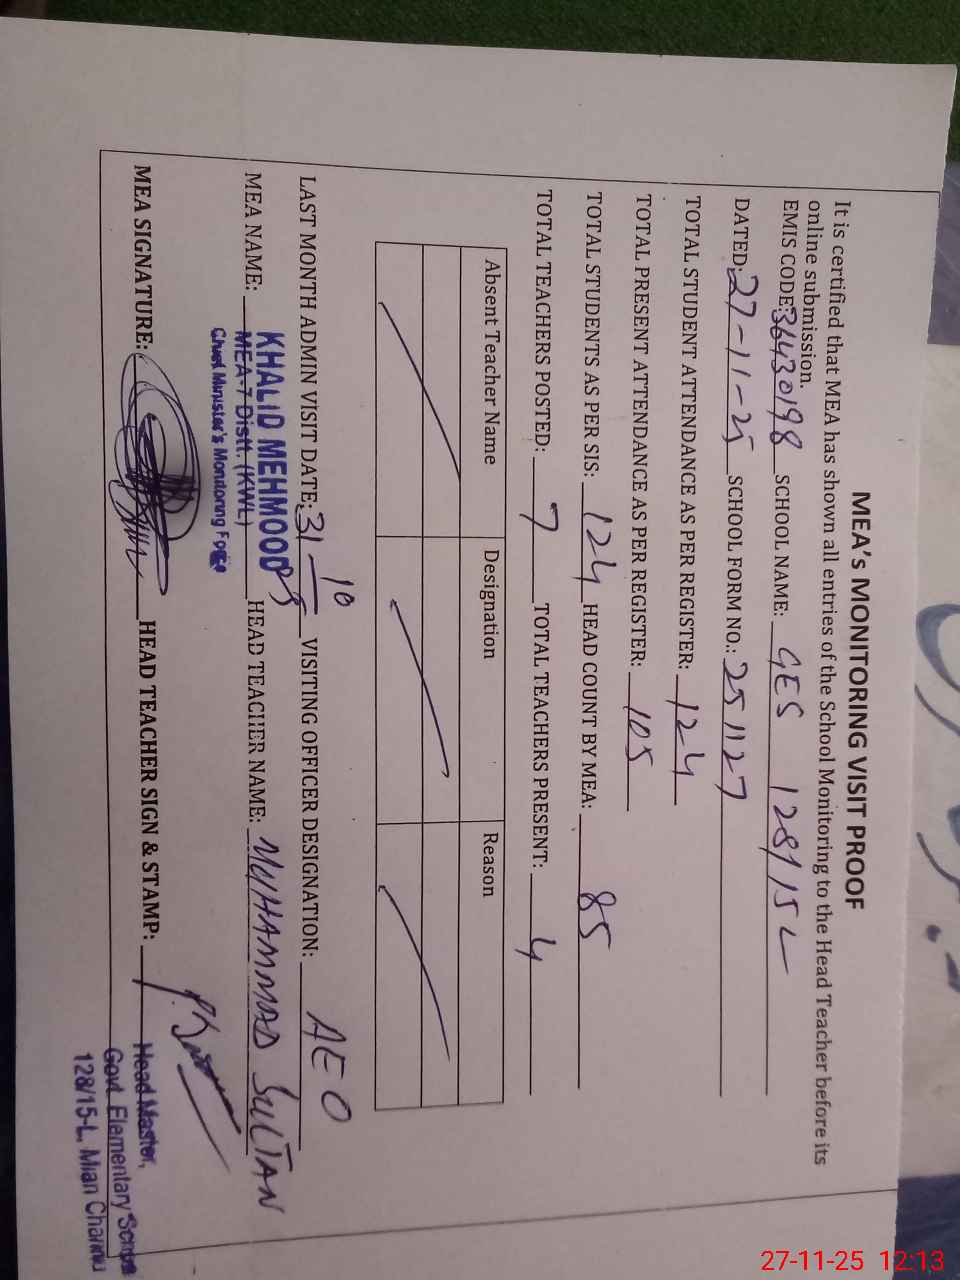 MEA's MONITORING VISIT PROOF
It is certified that MEA has shown all entries of the School Monitoring to the Head Teacher before its
online submission.
EMIS CODE: 36430198 SCHOOL NAME: GES 128/15 L
DATED: 27-11-25 SCHOOL FORM NO.: 251127
TOTAL STUDENT ATTENDANCE AS PER REGISTER: 124
TOTAL PRESENT ATTENDANCE AS PER REGISTER: 105
TOTAL STUDENTS AS PER SIS: 124 HEAD COUNT BY MEA: 85
TOTAL TEACHERS POSTED: 7 TOTAL TEACHERS PRESENT: 4
Absent Teacher Name Designation Reason
LAST MONTH ADMIN VISIT DATE: 31-10-25 VISITING OFFICER DESIGNATION: AEO
MEA NAME: KHALID MEHMOOD HEAD TEACHER NAME: MUHAMMAD SULTAN
MEA-7 Distt. (KWL)
Chief Minister's Monitoring Force
MEA SIGNATURE: HEAD TEACHER SIGN & STAMP:
Head Master,
Govt. Elementary School
128/15-L, Mian Channu
27-11-25 12:13